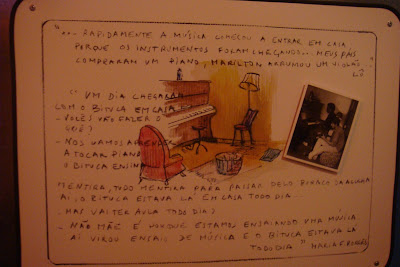 "... RAPIDAMENTE A MÚSICA COMEÇOU A ENTRAR EM CASA
PORQUE OS INSTRUMENTOS FORAM CHEGANDO... MEUS PAIS
COMPRARAM UM PIANO, MARILTON ARRUMOU UM VIOLÃO..."
LÔ
"UM DIA CHEGARAM
COM O BITUCA EM CASA E
- VOCÊS VÃO FAZER O
QUÊ?
- NÓS VAMOS APRENDER
A TOCAR PIANO
O BITUCA ENSINA...
MENTIRA, TODO MENTIRA PARA PASSAR PELO BURACO DA AGULHA
AÍ, O BITUCA ESTAVA LÁ EM CASA TODO DIA...
- MAS VAI TER AULA TODO DIA?
- NÃO MÃE É PORQUE ESTAMOS ENSAIANDO UMA MÚSICA
AÍ VIROU ENSAIO DE MÚSICA E O BITUCA ESTAVA LÁ
TODO DIA"